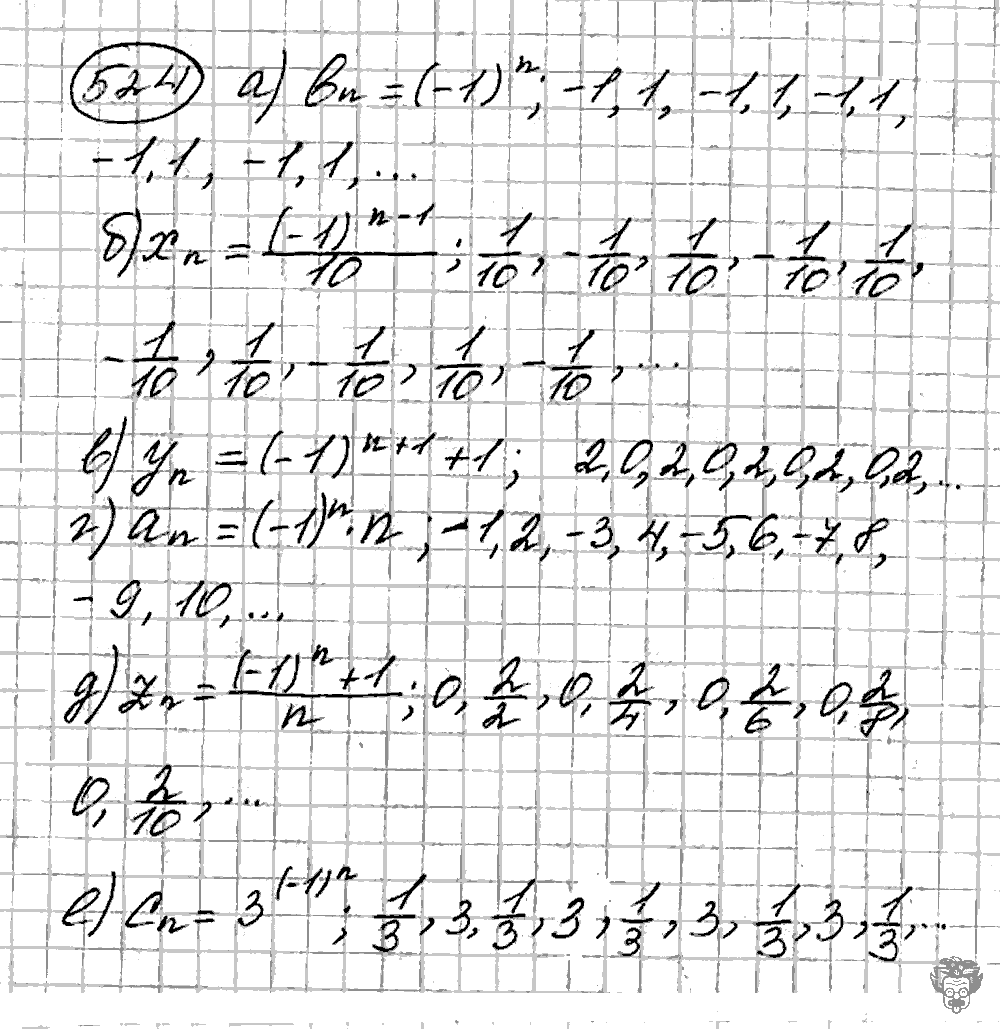 524 а) bₙ = (-1)ⁿ; -1, 1, -1, 1, -1, 1,
-1, 1, -1, 1, ...
б) xₙ = (-1)ⁿ⁻¹/10; 1/10, -1/10, 1/10, -1/10, 1/10,
-1/10, 1/10, -1/10, 1/10, -1/10, ...
в) yₙ = (-1)ⁿ⁺¹ + 1; 2, 0, 2, 0, 2, 0, 2, 0, 2, ...
г) aₙ = (-1)ⁿ · n; -1, 2, -3, 4, -5, 6, -7, 8,
-9, 10, ...
д) zₙ = ((-1)ⁿ + 1)/n; 0, 2/2, 0, 2/4, 0, 2/6, 0, 2/8,
0, 2/10, ...
е) cₙ = 3^((-1)ⁿ); 1/3, 3, 1/3, 3, 1/3, 3, 1/3, 3, 1/3, ...